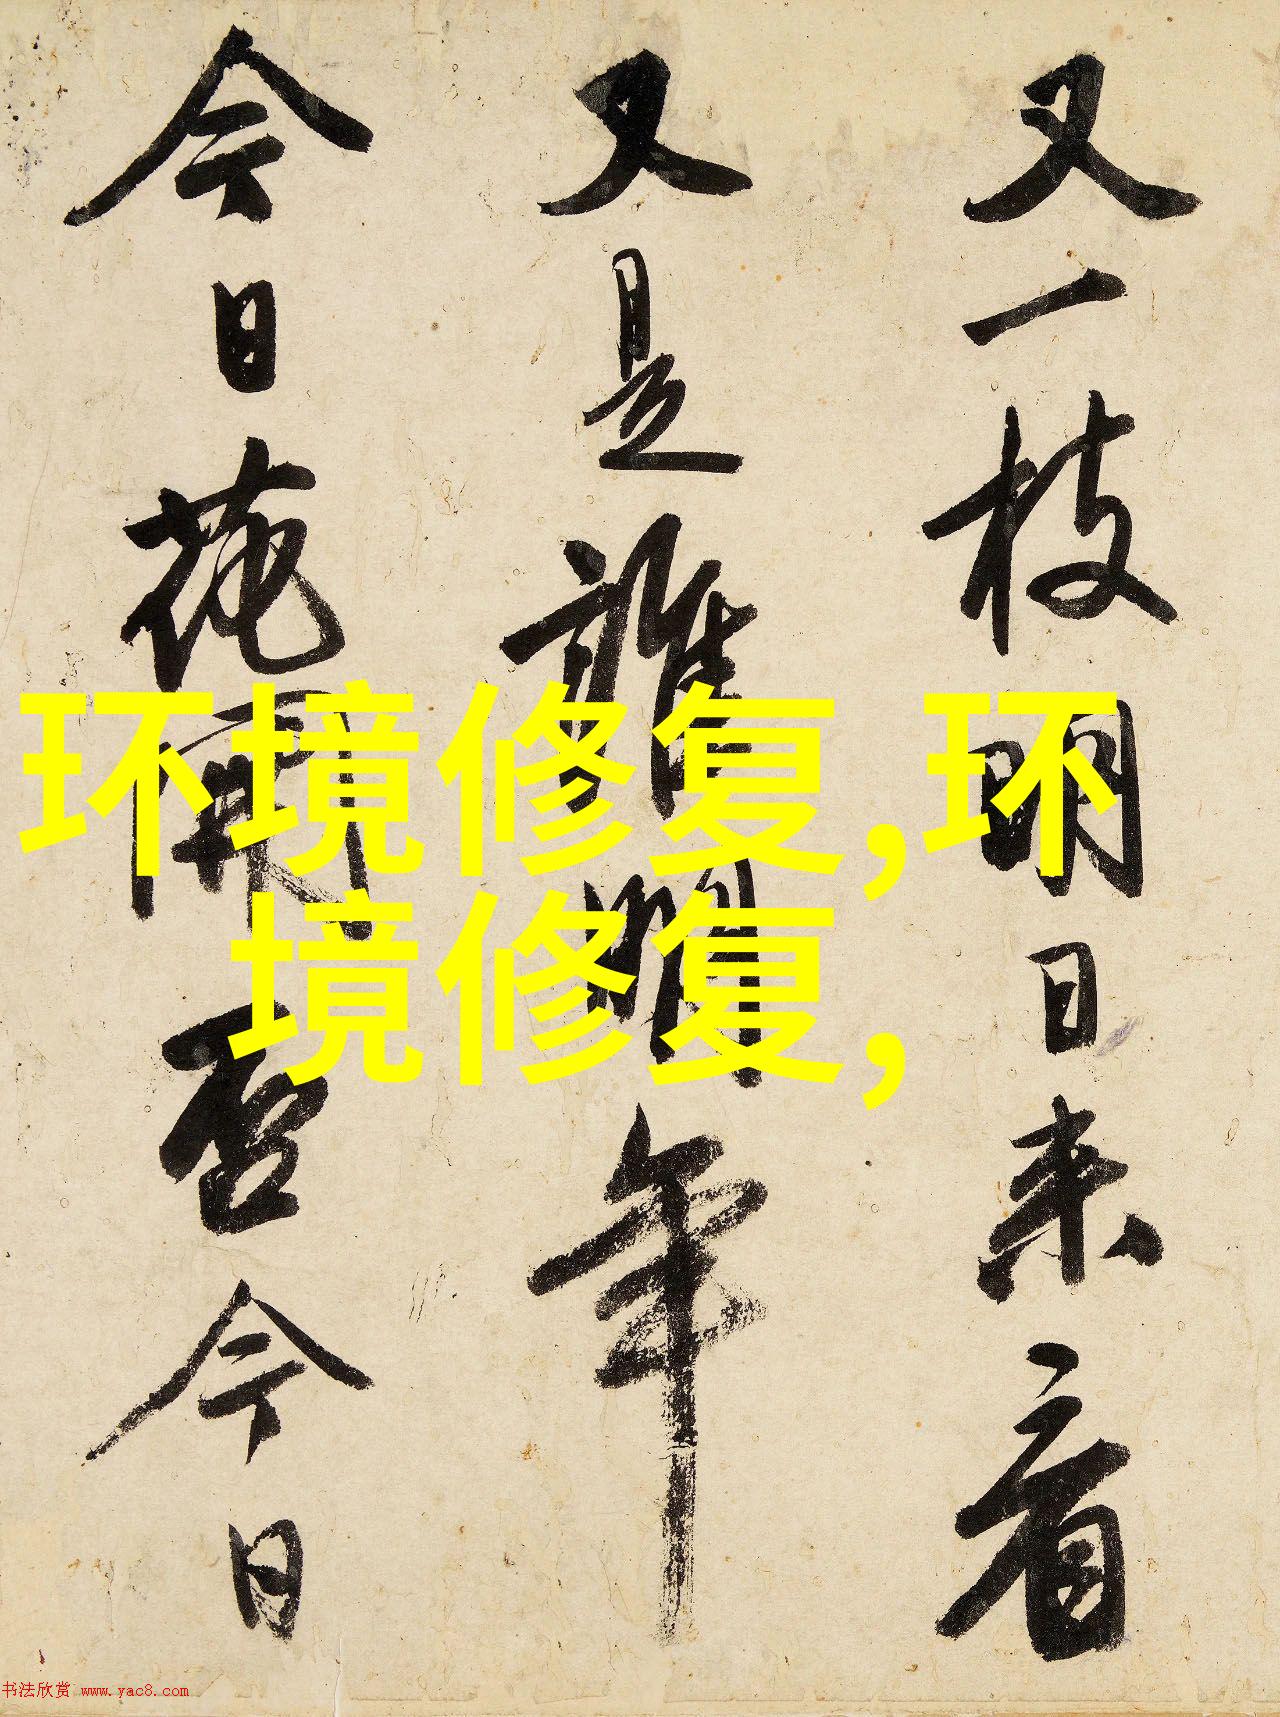 又一枝明日来看
又是誰明年
今日花開否今日
环境修复,环
境修复,
书法欣赏 www.yac8.com